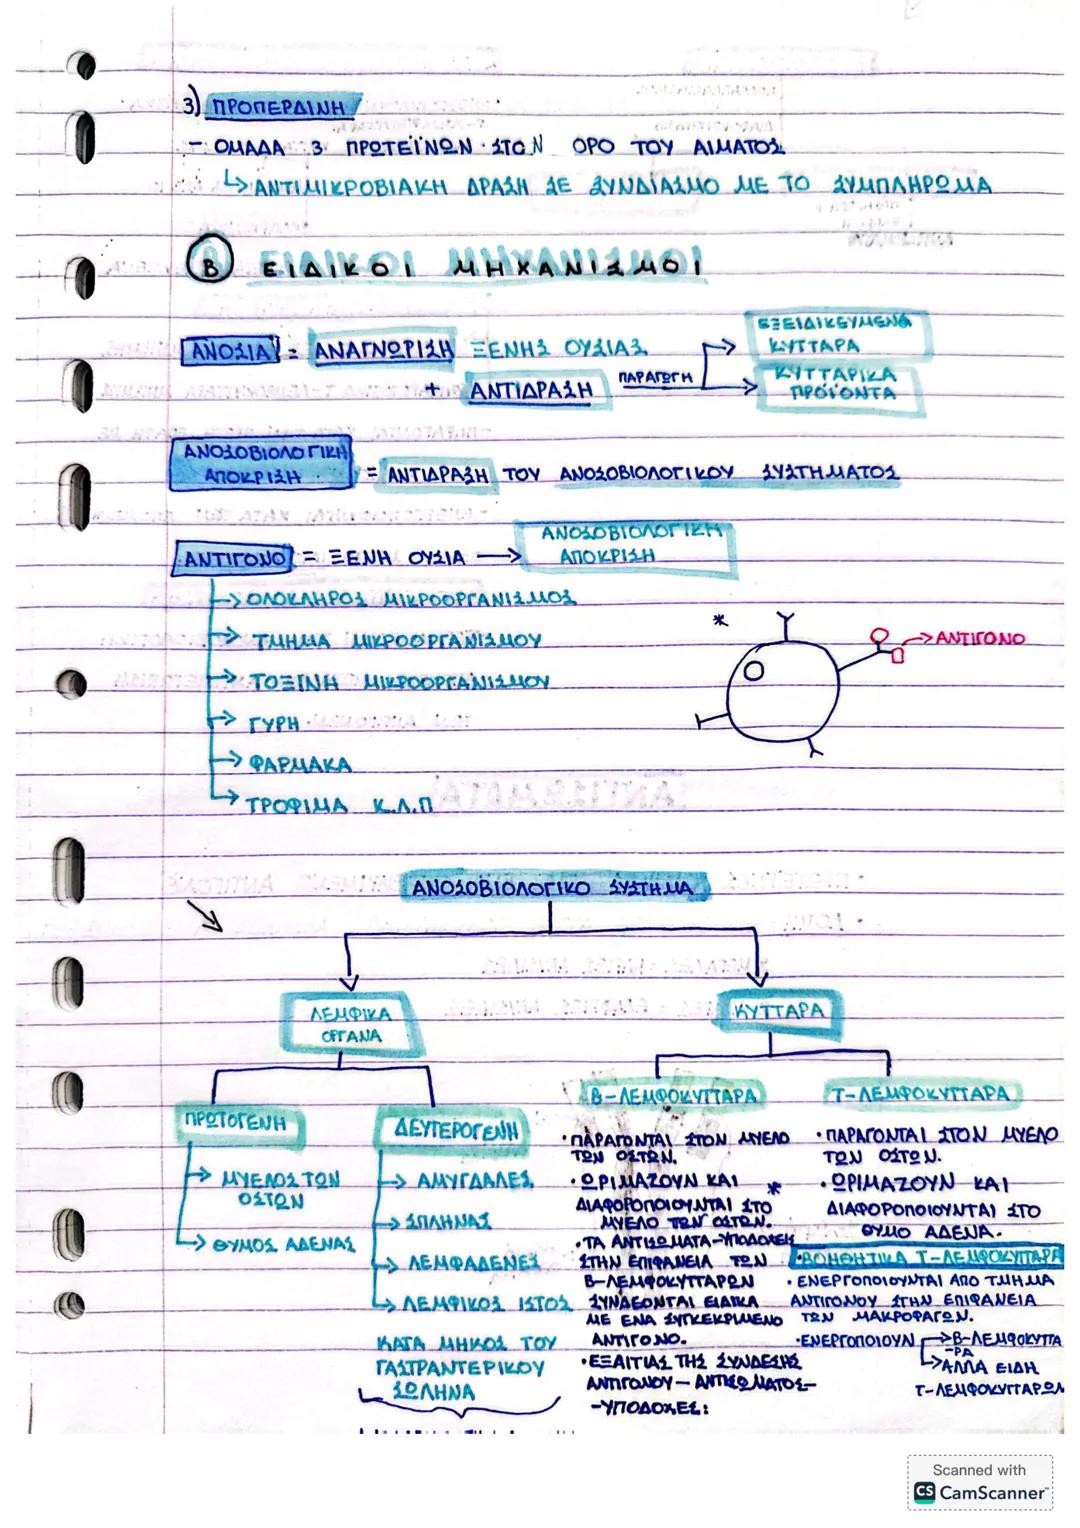 3) ΠΡΟΠΕΡΔΙΝΗ
- ΟΜΑΔΑ 3 ΠΡΩΤΕΪΝΩΝ ΣΤΟΝ ΟΡΟ ΤΟΥ ΑΙΜΑΤΟΣ
ΑΝΤΙΜΙΚΡΟΒΙΑΚΗ ΔΡΑΣΗ ΣΕ ΣΥΝΔΙΑΣΜΟ ΜΕ ΤΟ ΣΥΜΠΛΗΡΩΜΑ
Β ΕΙΔΙΚΟΙ ΜΗΧΑΝΙΣΜΟΙ
ΑΝΟΣΙΑ = ΑΝΑΓΝΩΡΙΣΗ ΞΕΝΗΣ ΟΥΣΙΑΣ
+ ΑΝΤΙΔΡΑΣΗ ΠΑΡΑΓΩΓΗ
ΕΞΕΙΔΙΚΕΥΜΕΝΑ
ΚΥΤΤΑΡΑ
ΚΥΤΤΑΡΙΚΑ
ΠΡΟΪΟΝΤΑ
ΑΝΟΣΟΒΙΟΛΟΓΙΚΗ
ΑΠΟΚΡΙΣΗ = ΑΝΤΙΔΡΑΣΗ ΤΟΥ ΑΝΟΣΟΒΙΟΛΟΓΙΚΟΥ ΣΥΣΤΗΜΑΤΟΣ
ΑΝΤΙΓΟΝΟ = ΞΕΝΗ ΟΥΣΙΑ → ΑΝΟΣΟΒΙΟΛΟΓΙΚΗ
ΑΠΟΚΡΙΣΗ
→ ΟΛΟΚΛΗΡΟΣ ΜΙΚΡΟΟΡΓΑΝΙΣΜΟΣ
→ ΤΜΗΜΑ ΜΙΚΡΟΟΡΓΑΝΙΣΜΟΥ
→ ΤΟΞΙΝΗ ΜΙΚΡΟΟΡΓΑΝΙΣΜΟΥ
→ ΓΥΡΗ
→ ΦΑΡΜΑΚΑ
→ ΤΡΟΦΙΜΑ Κ.Λ.Π
*
→ ΑΝΤΙΓΟΝΟ
ΑΝΟΣΟΒΙΟΛΟΓΙΚΟ ΣΥΣΤΗΜΑ
ΛΕΜΦΙΚΑ
ΟΡΓΑΝΑ
ΠΡΩΤΟΓΕΝΗ
→ ΜΥΕΛΟΣ ΤΩΝ
ΟΣΤΩΝ
→ ΘΥΜΟΣ ΑΔΕΝΑΣ
ΔΕΥΤΕΡΟΓΕΝΗ
→ ΑΜΥΓΔΑΛΕΣ
→ ΣΠΛΗΝΑΣ
→ ΛΕΜΦΑΔΕΝΕΣ
→ ΛΕΜΦΙΚΟΣ ΙΣΤΟΣ
ΚΑΤΑ ΜΗΚΟΣ ΤΟΥ
ΓΑΣΤΡΑΝΤΕΡΙΚΟΥ
ΣΩΛΗΝΑ
ΚΥΤΤΑΡΑ
Β-ΛΕΜΦΟΚΥΤΤΑΡΑ
• ΠΑΡΑΓΟΝΤΑΙ ΣΤΟΝ ΜΥΕΛΟ
ΤΩΝ ΟΣΤΩΝ.
• ΩΡΙΜΑΖΟΥΝ ΚΑΙ *
ΔΙΑΦΟΡΟΠΟΙΟΥΝΤΑΙ ΣΤΟ
ΜΥΕΛΟ ΤΩΝ ΟΣΤΩΝ.
• ΤΑ ΑΝΤΙΣΩΜΑΤΑ-ΥΠΟΔΟΧΕΙΣ
ΣΤΗΝ ΕΠΙΦΑΝΕΙΑ ΤΩΝ
Β-ΛΕΜΦΟΚΥΤΤΑΡΩΝ
ΣΥΝΔΕΟΝΤΑΙ ΕΙΔΙΚΑ
ΜΕ ΕΝΑ ΣΥΓΚΕΚΡΙΜΕΝΟ
ΑΝΤΙΓΟΝΟ.
• ΕΞΑΙΤΙΑΣ ΤΗΣ ΣΥΝΔΕΣΗΣ
ΑΝΤΙΓΟΝΟΥ - ΑΝΤΙΣΩΜΑΤΟΣ-
-ΥΠΟΔΟΧΕΣ:
Τ-ΛΕΜΦΟΚΥΤΤΑΡΑ
• ΠΑΡΑΓΟΝΤΑΙ ΣΤΟΝ ΜΥΕΛΟ
ΤΩΝ ΟΣΤΩΝ.
• ΩΡΙΜΑΖΟΥΝ ΚΑΙ
ΔΙΑΦΟΡΟΠΟΙΟΥΝΤΑΙ ΣΤΟ
ΘΥΜΟ ΑΔΕΝΑ.
• ΒΟΗΘΗΤΙΚΑ Τ-ΛΕΜΦΟΚΥΤΤΑΡΑ
• ΕΝΕΡΓΟΠΟΙΟΥΝΤΑΙ ΑΠΟ ΤΜΗΜΑ
ΑΝΤΙΓΟΝΟΥ ΣΤΗΝ ΕΠΙΦΑΝΕΙΑ
ΤΩΝ ΜΑΚΡΟΦΑΓΩΝ.
• ΕΝΕΡΓΟΠΟΙΟΥΝ → Β-ΛΕΜΦΟΚΥΤΤΑ
-ΡΑ
→ ΑΛΛΑ ΕΙΔΗ
Τ-ΛΕΜΦΟΚΥΤΤΑΡΩΝ
Scanned with
CS CamScanner